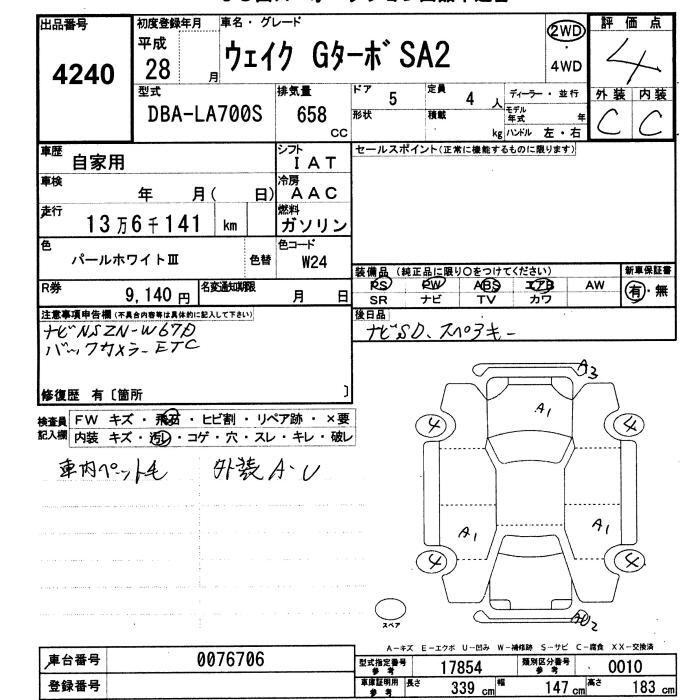 出品番号 初度登録年月 車名・グレード 評価点
4240 平成 28 月 ウェイク GターボSA2 2WD・4WD 4
型式 排気量 ドア 定員 ディーラー・並行 外装 内装
DBA-LA700S 658 CC 5 4 人 C C
形状 積載 kg モデル年式 年
ハンドル 左・右
車歴 自家用 シフト IAT セールスポイント(正常に機能するものに限ります)
車検 年 月( 日) 冷房 AAC
走行 13万6千141 km 燃料 ガソリン
色 パールホワイトⅢ 色替 色コード W24
装備品 (純正品に限り○をつけてください) 新車保証書
PS PW ABS エアB AW 有・無
SR ナビ TV カワ
R券 9,140円 名変通知期限 月 日
後日品
ナビSD、スペアキー
注意事項申告欄(不具合内容等は具体的に記入して下さい)
ナビNSZN-W67D
バックカメラ- ETC
修復歴 有〔箇所 〕
検査員記入欄 FW キズ・飛石・ヒビ割・リペア跡・×要
内装 キズ・汚レ・コゲ・穴・スレ・キレ・破レ
車内ペット毛 外装A・U
A3
A1
4 4
A1 A1
4 4
スペア
AU2
A-キズ E-エクボ U-凹み W-補修跡 S-サビ C-腐食 XX-交換済
車台番号 0076706
登録番号
型式指定番号 参考 17854 類別区分番号 参考 0010
車庫証明用 参考 長さ 339 cm 幅 147 cm 高さ 183 cm